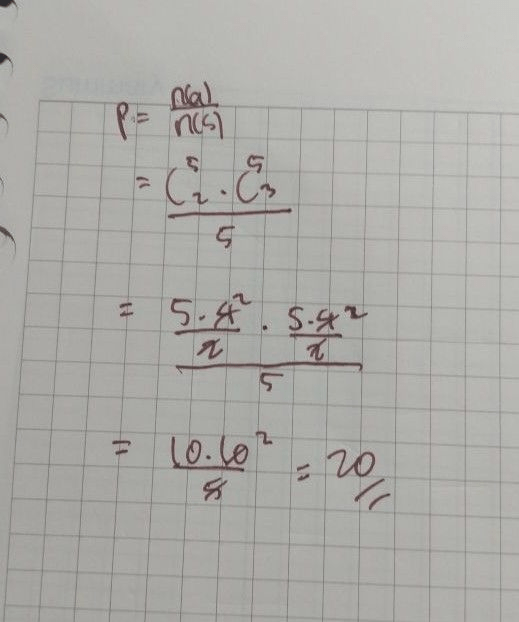 P = n(a)/n(s)
= C⁵₂ . C⁵₃ / 5
= 5.4²/2 . 5.4²/2 / 5
= 10.10²/5 = 20